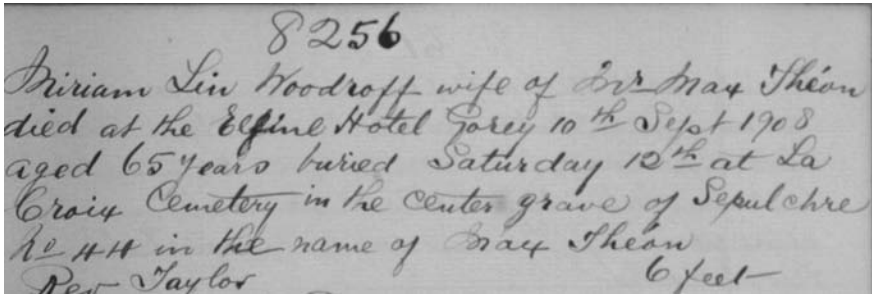 8256
Miriam Lin Woodroff wife of Mr Max Théon
died at the Elfine Hotel Gorey 10th Sept 1908
aged 65 years buried Saturday 12th at La
Croix Cemetery in the center grave of Sepulchre
No 44 in the name of Max Théon
Rev Taylor 6 feet